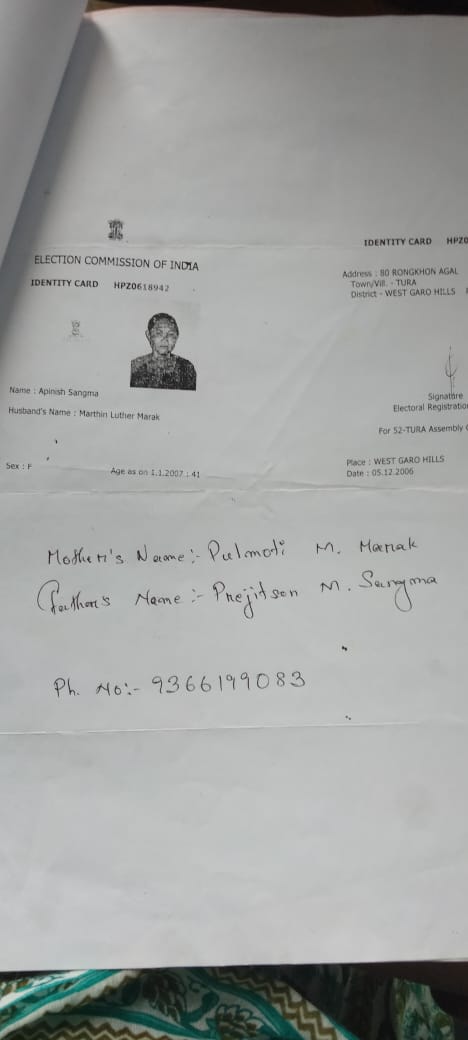 ELECTION COMMISSION OF INDIA
IDENTITY CARD HPZ0618942
Name : Apinish Sangma
Husband's Name : Marthin Luther Marak
Sex : F
Age as on 1.1.2007 : 41
IDENTITY CARD HPZ0
Address : 80 RONGKHON AGAL
Town/Vill. - TURA
District - WEST GARO HILLS
Signature
Electoral Registratio
For 52-TURA Assembly
Place : WEST GARO HILLS
Date : 05.12.2006
Mother's Name :- Pulmoti M. Marak
Father's Name :- Prejitson M. Sangma
Ph. No :- 9366199083